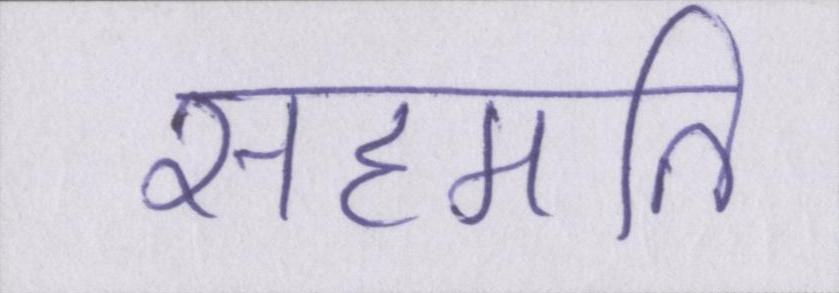 सहमति